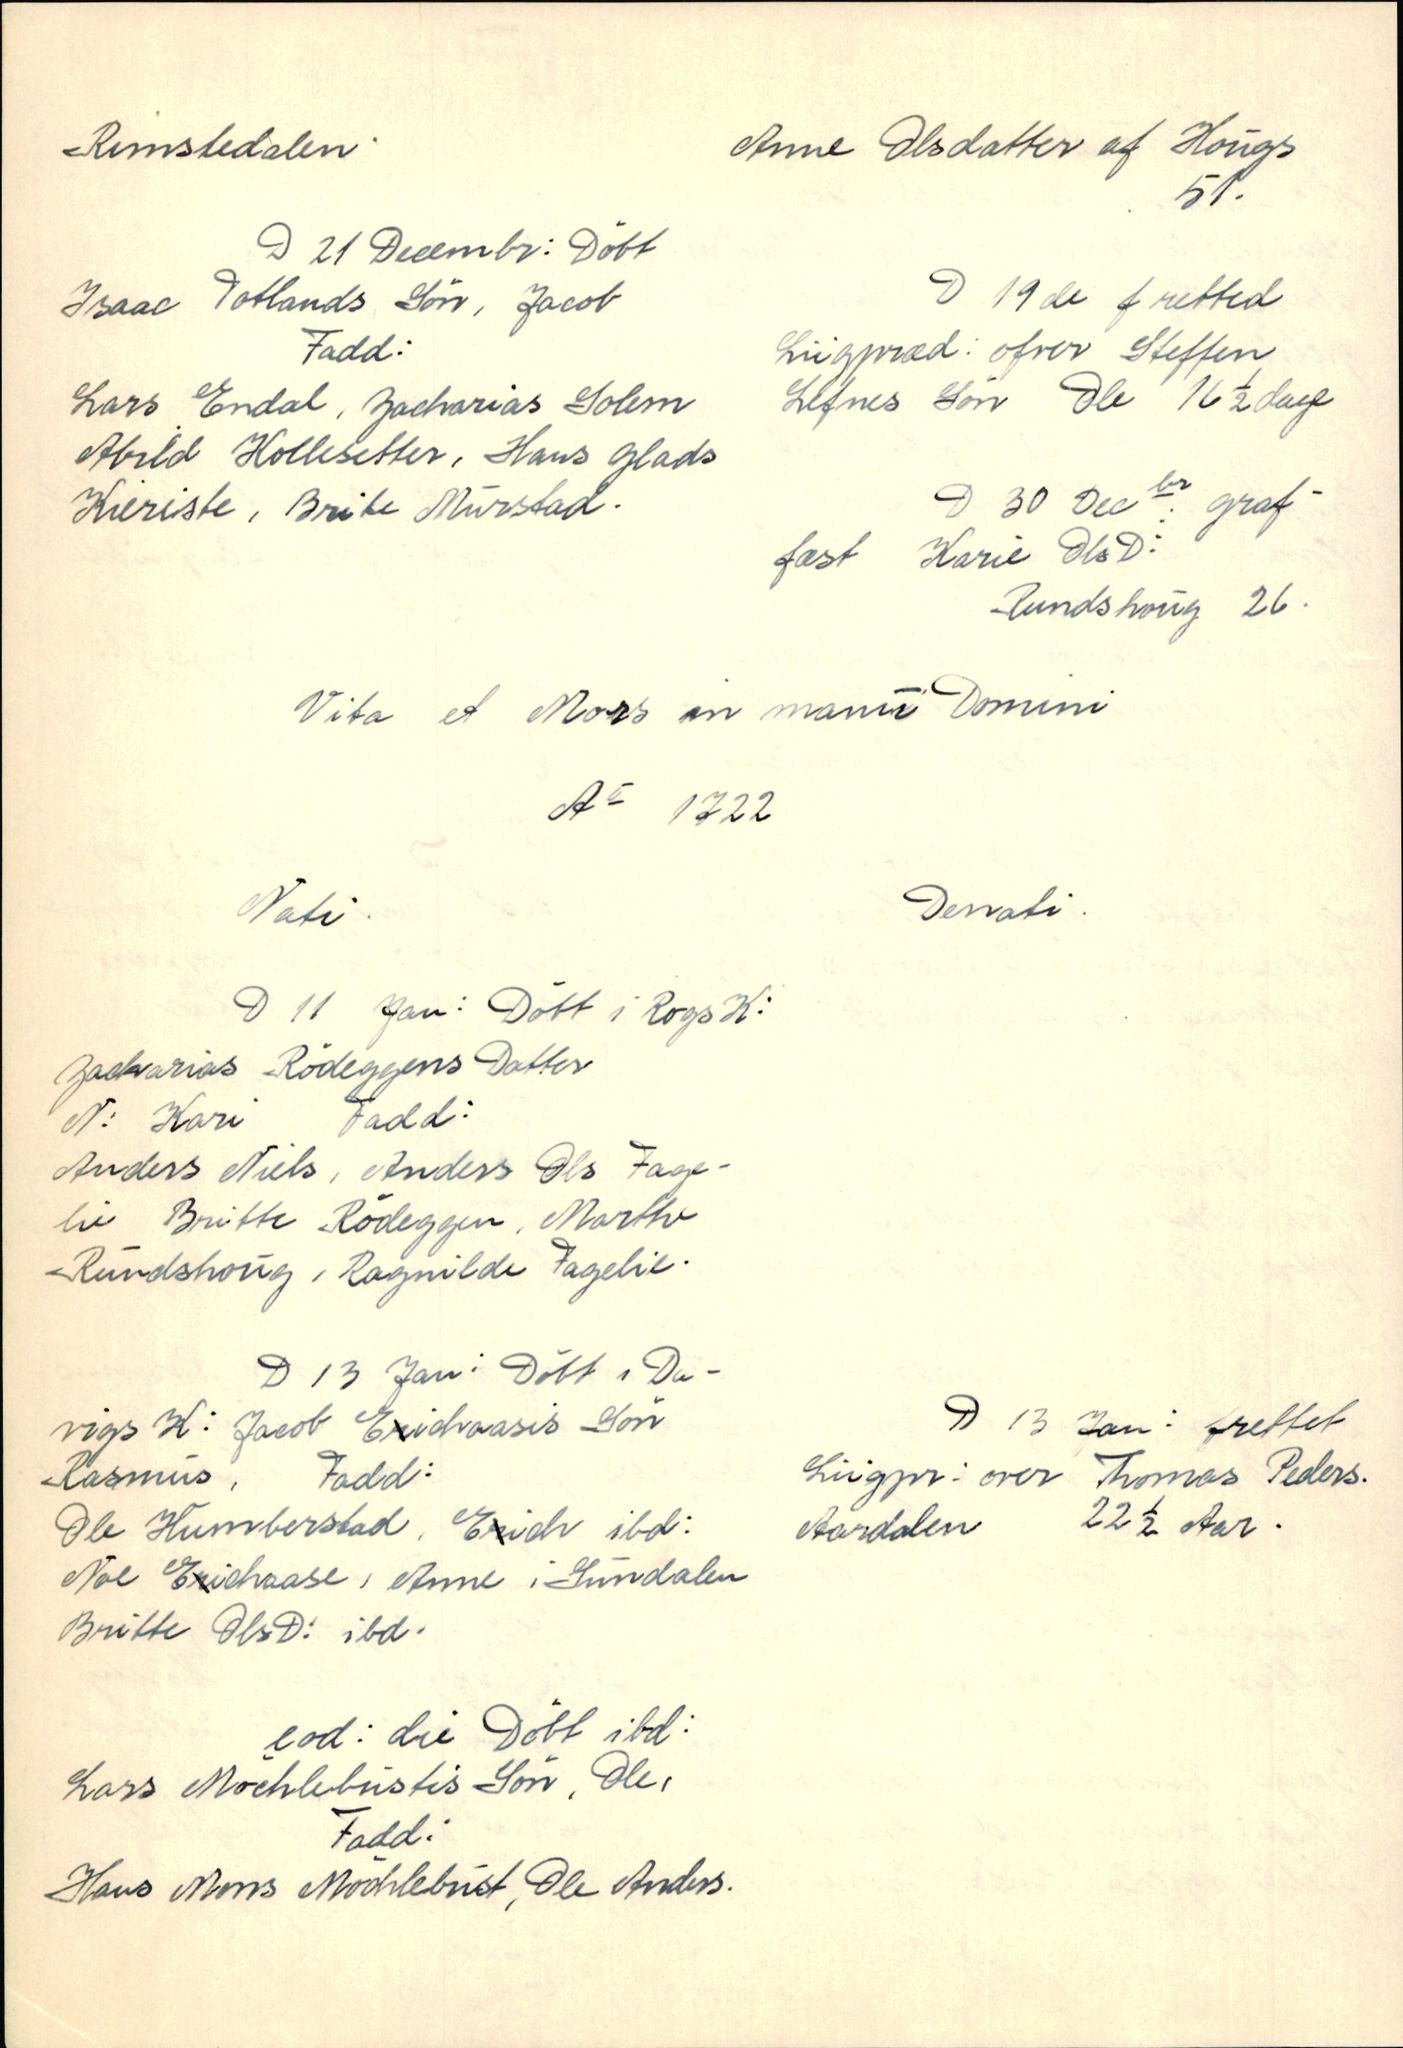 Rimstedalen
D 21 Decembr: Döbt
Isaac Totlands Sön, Jacob
Fadd:
Lars Endal, Zacharias Solem
Abild Hollesetter, Hans Glads
Kieriste, Brite Mūrstad.
Anne Olsdatter af Hoūgs
51.
D 19de f retted
Liigpræd: ofver Steffen
Lefnes Sön Ole 16 ½ dage
D 30 Decbr: graf-
fæst Karie OlsD:
Rundshoūg 26.
Vita et Mors in manū Domini
Ao 1722
Nati.
Denati.
D 11 Jan: Döbt i Rogs K:
Zacharias Rödeggens Datter
N: Kari Fadd:
Anders Niels, Anders Ols Fage-
lie Britte Rödeggen, Marthe
Rūndshoūg, Ragnilde Fagelie.
D 13 Jan: Döbt i Da-
vigs K: Jacob Erichaasis Sön
Rasmūs, Fadd:
Ole Humberstad, Erich ibd:
Noe Erichaase, Anne i Sūndalen
Britte OlsD: ibd.
D 13 Jan: frettet
Liigpr: over Thomas Peders.
Aardalen 22 ½ Aar.
eod: die Döbt ibd:
Lars Möchlebūstis Sön, Ole,
Fadd:
Hans Mons Möchlebūst, Ole Anders.